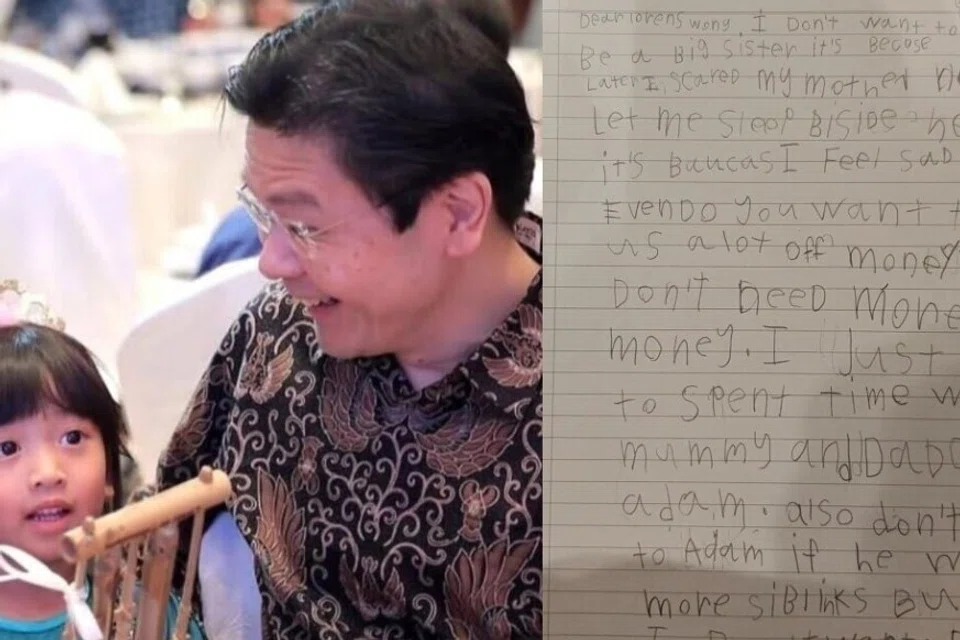 Dear lorens wong. I Don't want to
Be a Big Sister it's Becose
Later I, scared My Mother
Let me sleep Biside
it's Buucas I Feel sad
EvenDo you want
us a lot off money
Don't need
money. I Just
to spent time
mummy and
adam. also don't
to Adam if he
more siBlinks